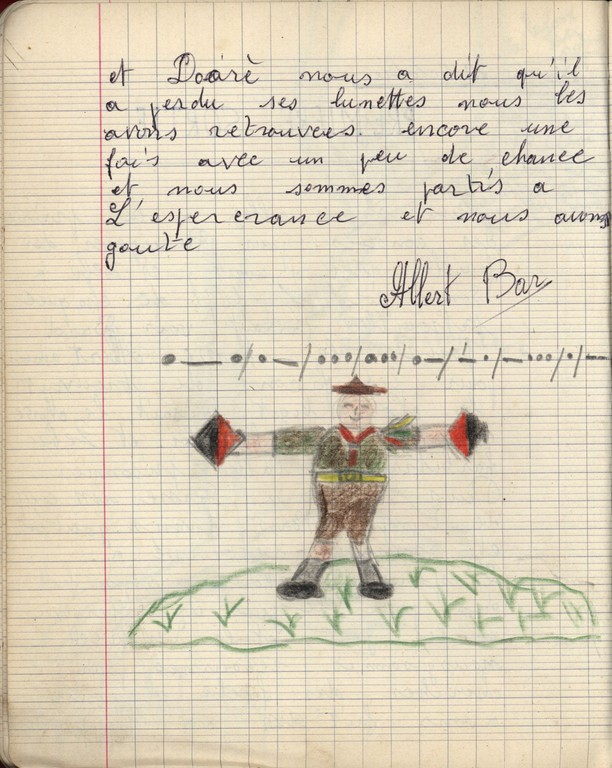 et Doaré nous a dit qu'il
a perdu ses lunettes nous les
avons retrouvees. encore une
fois avec un peu de chance
et nous sommes partis a
L'espererance et nous avons
gouté
Albert Bar